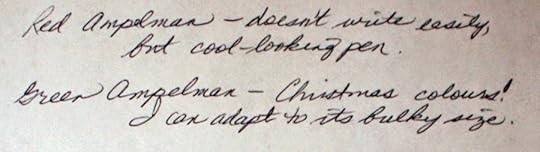 Red Ampelman – doesn't write easily,
but cool-looking pen.
Green Ampelman – Christmas colours!
I can adapt to its bulky size.